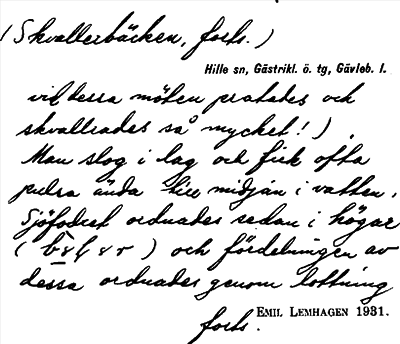 (Skvallerbäcken, forts.)
Hille sn, Gästrikl. ö. tg, Gävleb. l.
vid dessa möten pratades och
skvallrades så mycket!)
Man slog i lag och fick ofta
pulsa ända till midjan i vatten.
Sjöfodret ordnades sedan i högar
( ) och fördelningen av
dessa ordnades genom lottning
EMIL LEMHAGEN 1931.
forts.